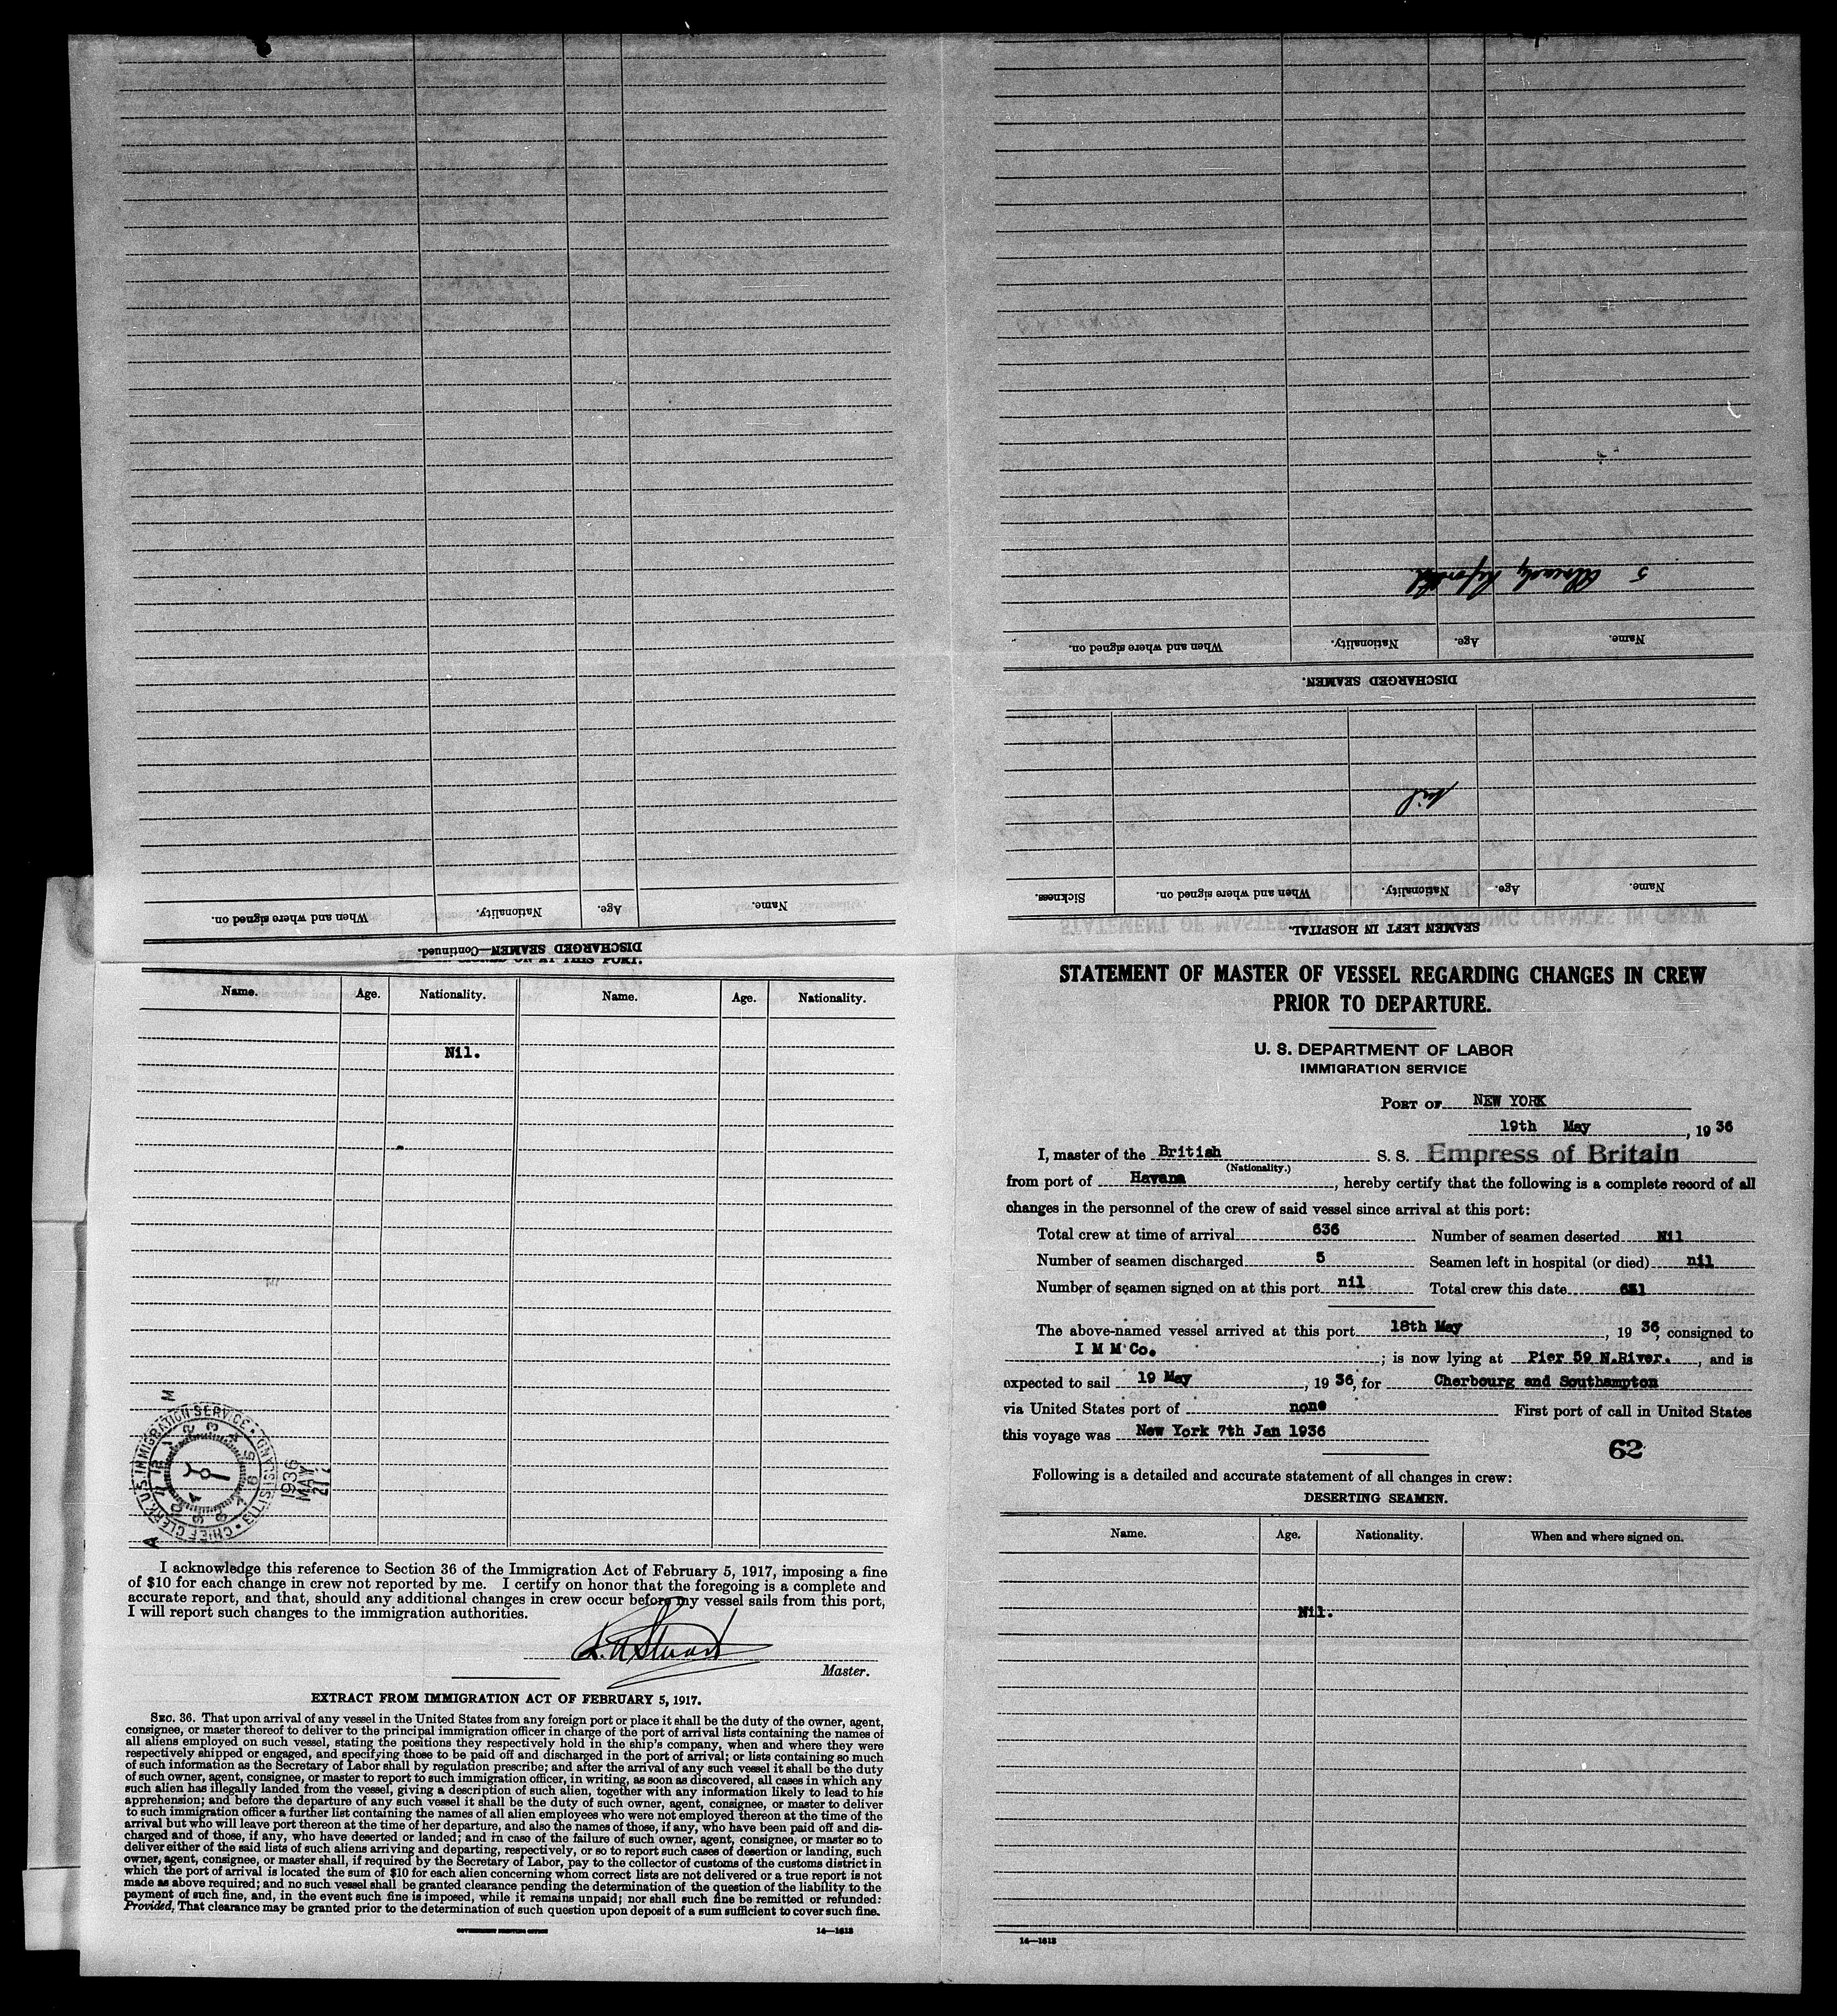 STATEMENT OF MASTER OF VESSEL REGARDING CHANGES IN CREW
PRIOR TO DEPARTURE.
U. S. DEPARTMENT OF LABOR
IMMIGRATION SERVICE
PORT OF NEW YORK
19th May, 1936
I, master of the British S. S. Empress of Britain
(Nationality.)
from port of Havana, hereby certify that the following is a complete record of all
changes in the personnel of the crew of said vessel since arrival at this port:
Total crew at time of arrival 636 Number of seamen deserted Nil
Number of seamen discharged 5 Seamen left in hospital (or died) nil
Number of seamen signed on at this port nil Total crew this date 631
The above-named vessel arrived at this port 18th May, 1936, consigned to
I M M Co.; is now lying at Pier 59 N.River., and is
expected to sail 19 May, 1936, for Cherbourg and Southampton
via United States port of none First port of call in United States
this voyage was New York 7th Jan 1936
62
Following is a detailed and accurate statement of all changes in crew:
DESERTING SEAMEN.
Name. Age. Nationality. When and where signed on.
Nil.
14—1613
SEAMEN LEFT IN HOSPITAL.
Name. Age. Nationality. When and where signed on. Sickness.
nil
DISCHARGED SEAMEN.
Name. Age. Nationality. When and where signed on.
5 Already Reported.
DISCHARGED SEAMEN—Continued.
Name. Age. Nationality. When and where signed on.
ON AT THIS PORT.
Name. Age. Nationality. Name. Age. Nationality.
Nil.
CHIEF CLERK U.S. IMMIGRATION SERVICE
1936
MAY
21
I acknowledge this reference to Section 36 of the Immigration Act of February 5, 1917, imposing a fine
of $10 for each change in crew not reported by me. I certify on honor that the foregoing is a complete and
accurate report, and that, should any additional changes in crew occur before my vessel sails from this port,
I will report such changes to the immigration authorities.
Stuart
Master.
EXTRACT FROM IMMIGRATION ACT OF FEBRUARY 5, 1917.
SEC. 36. That upon arrival of any vessel in the United States from any foreign port or place it shall be the duty of the owner, agent,
consignee, or master thereof to deliver to the principal immigration officer in charge of the port of arrival lists containing the names of
all aliens employed on such vessel, stating the positions they respectively hold in the ship's company, when and where they were
respectively shipped or engaged, and specifying those to be paid off and discharged in the port of arrival; or lists containing so much
of such information as the Secretary of Labor shall by regulation prescribe; and after the arrival of any such vessel it shall be the duty
of such owner, agent, consignee, or master to report to such immigration officer, in writing, as soon as discovered, all cases in which any
such alien has illegally landed from the vessel, giving a description of such alien, together with any information likely to lead to his
apprehension; and before the departure of any such vessel it shall be the duty of such owner, agent, consignee, or master to deliver
to such immigration officer a further list containing the names of all alien employees who were not employed thereon at the time of the
arrival but who will leave port thereon at the time of her departure, and also the names of those, if any, who have been paid off and dis-
charged and of those, if any, who have deserted or landed; and in case of the failure of such owner, agent, consignee, or master so to
deliver either of the said lists of such aliens arriving and departing, respectively, or so to report such cases of desertion or landing, such
owner, agent, consignee, or master shall, if required by the Secretary of Labor, pay to the collector of customs of the customs district in
which the port of arrival is located the sum of $10 for each alien concerning whom correct lists are not delivered or a true report is not
made as above required; and no such vessel shall be granted clearance pending the determination of the question of the liability to the
payment of such fine, and, in the event such fine is imposed, while it remains unpaid; nor shall such fine be remitted or refunded:
Provided, That clearance may be granted prior to the determination of such question upon deposit of a sum sufficient to cover such fine.
GOVERNMENT PRINTING OFFICE 14—1613